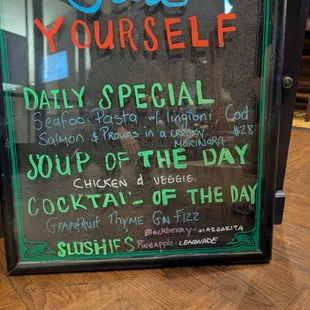 YOURSELF
DAILY SPECIAL
Seafoo Pasta w/ lingioni, Cod
Salmon & Prawns in a creamy $28
MARINARA
SOUP OF THE DAY
CHICKEN & VEGGIE
COCKTAIL OF THE DAY
GRAPEFRUIT THYME GIN FIZZ
Blackberry - MARGARITA
SLUSHIES Pineapple - LEMONADE